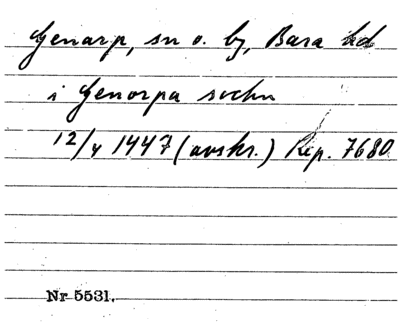 Genarp, sn o. by, Bara hd
i Genorpa sochn
12/4 1447 (avskr.) Rep. 7680
Nr 5531.